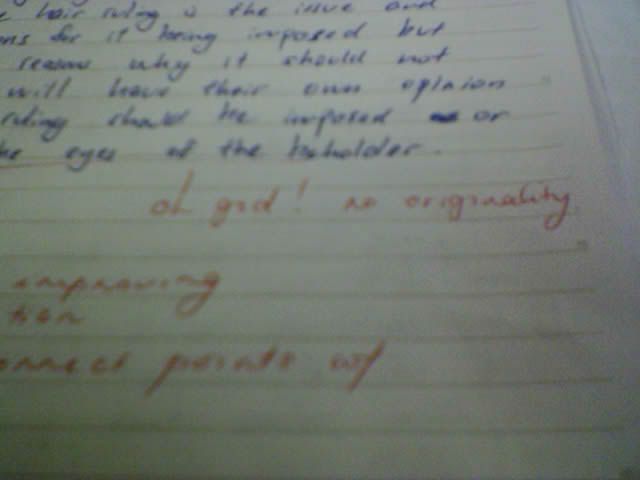 hair ruling is the issue and
ons for it being imposed but
reasons why it should not
will have their own opinion
ruling should be imposed or
he eyes of the beholder.
oh god! no originality
improving
tion
onnect points w/